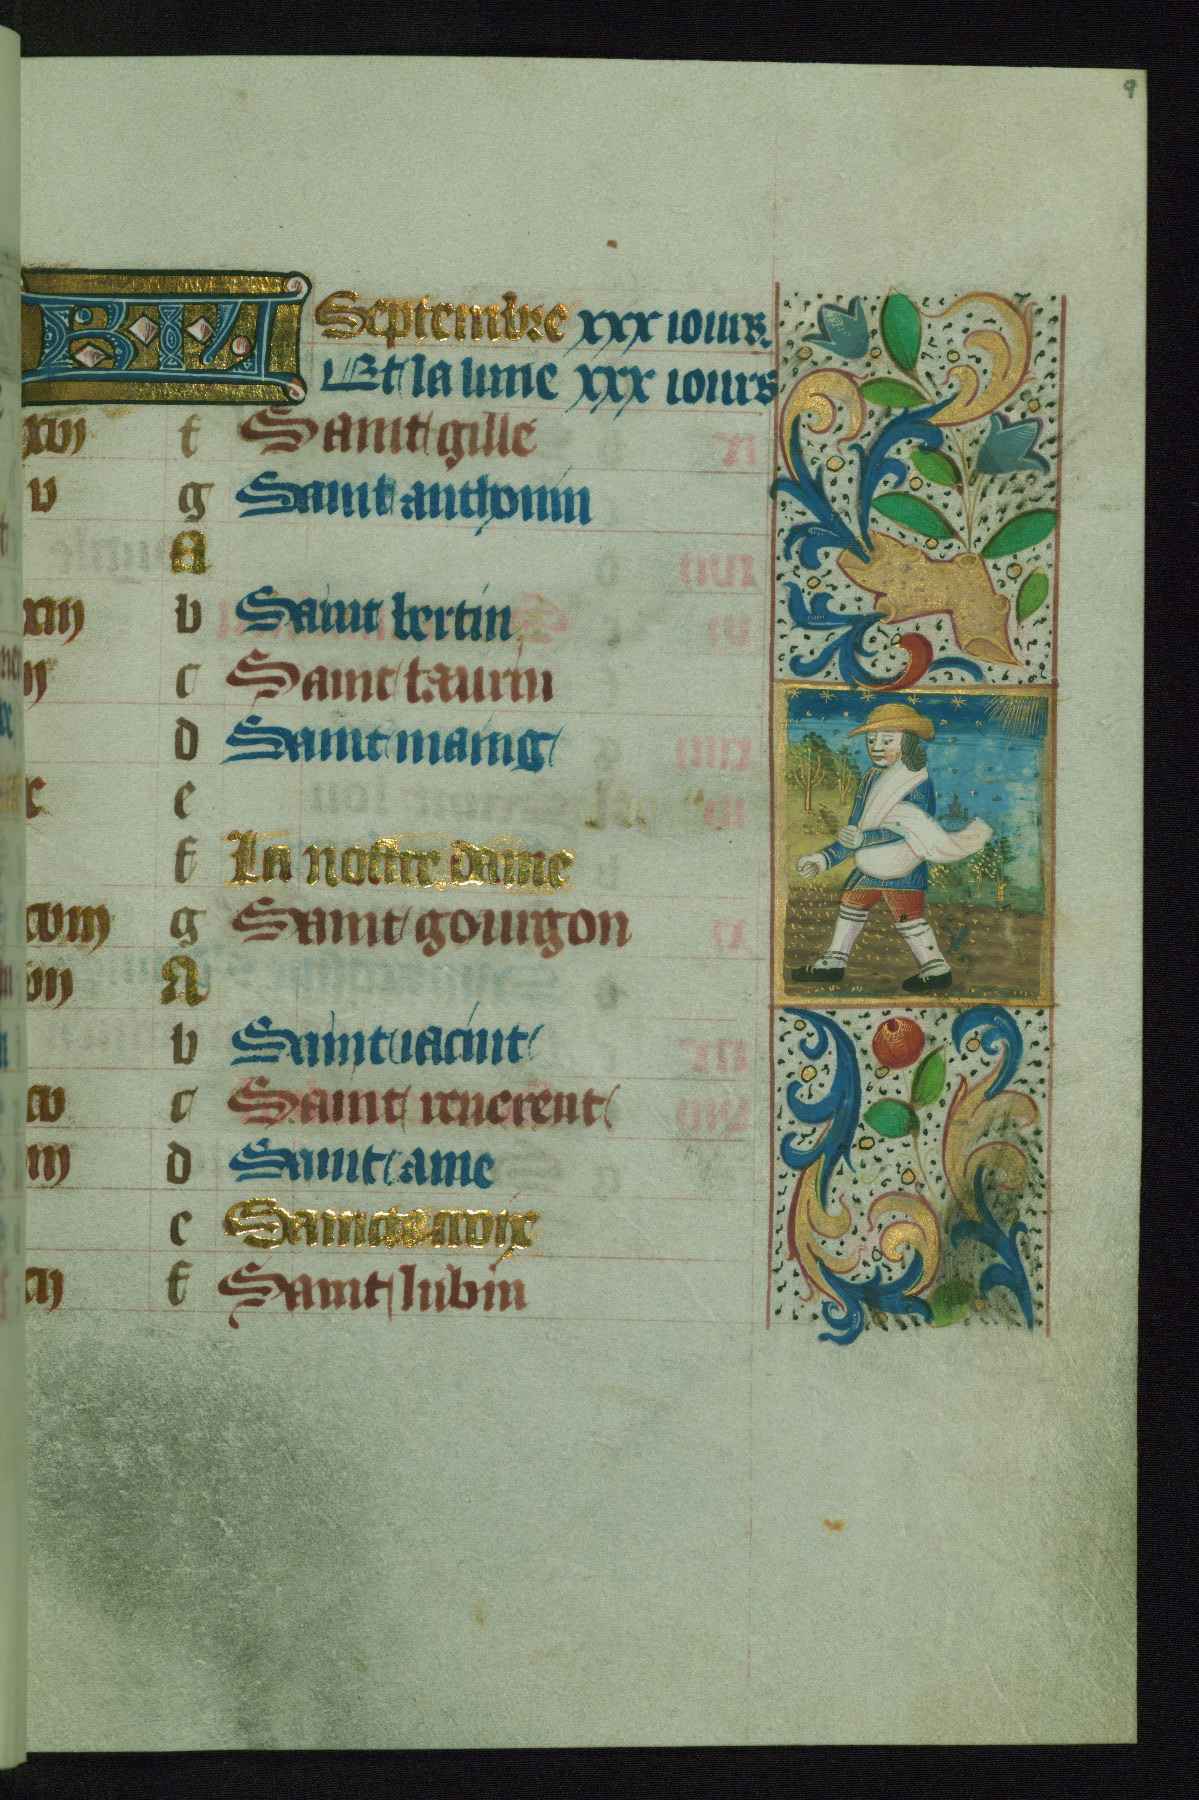 9
KL Septembre xxx iours.
Et la lune xxx iours
xvi f Saint gille
v g Saint anthonin
A
xiii b Saint bertin
ii c Saint taurin
d Saint maing
e
f La nostre dame
xviii g Saint gourgon
vii A
b Saint iacint
xv c Saint reuerent
iiii d Saint ame
e Saincte croix
xii f Saint lubin